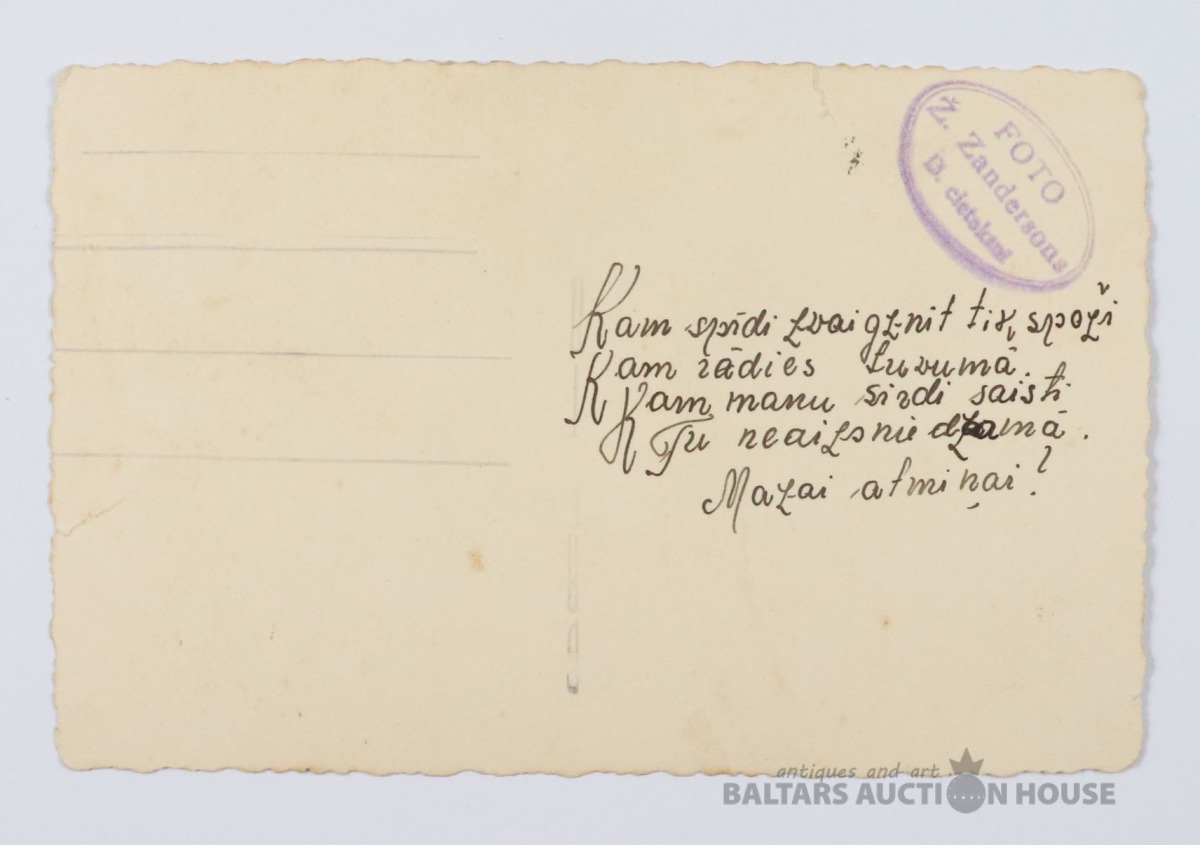 FOTO
Ž. Zandersons
D. cietoksnī
Kam spīdi zvaigznit tik spoži
Kam rādies tuvumā.
Kam manu sirdi saisti
Tu neaizsniedzamā.
Mazai atmiņai!
antiques and art
BALTARS AUCTION HOUSE